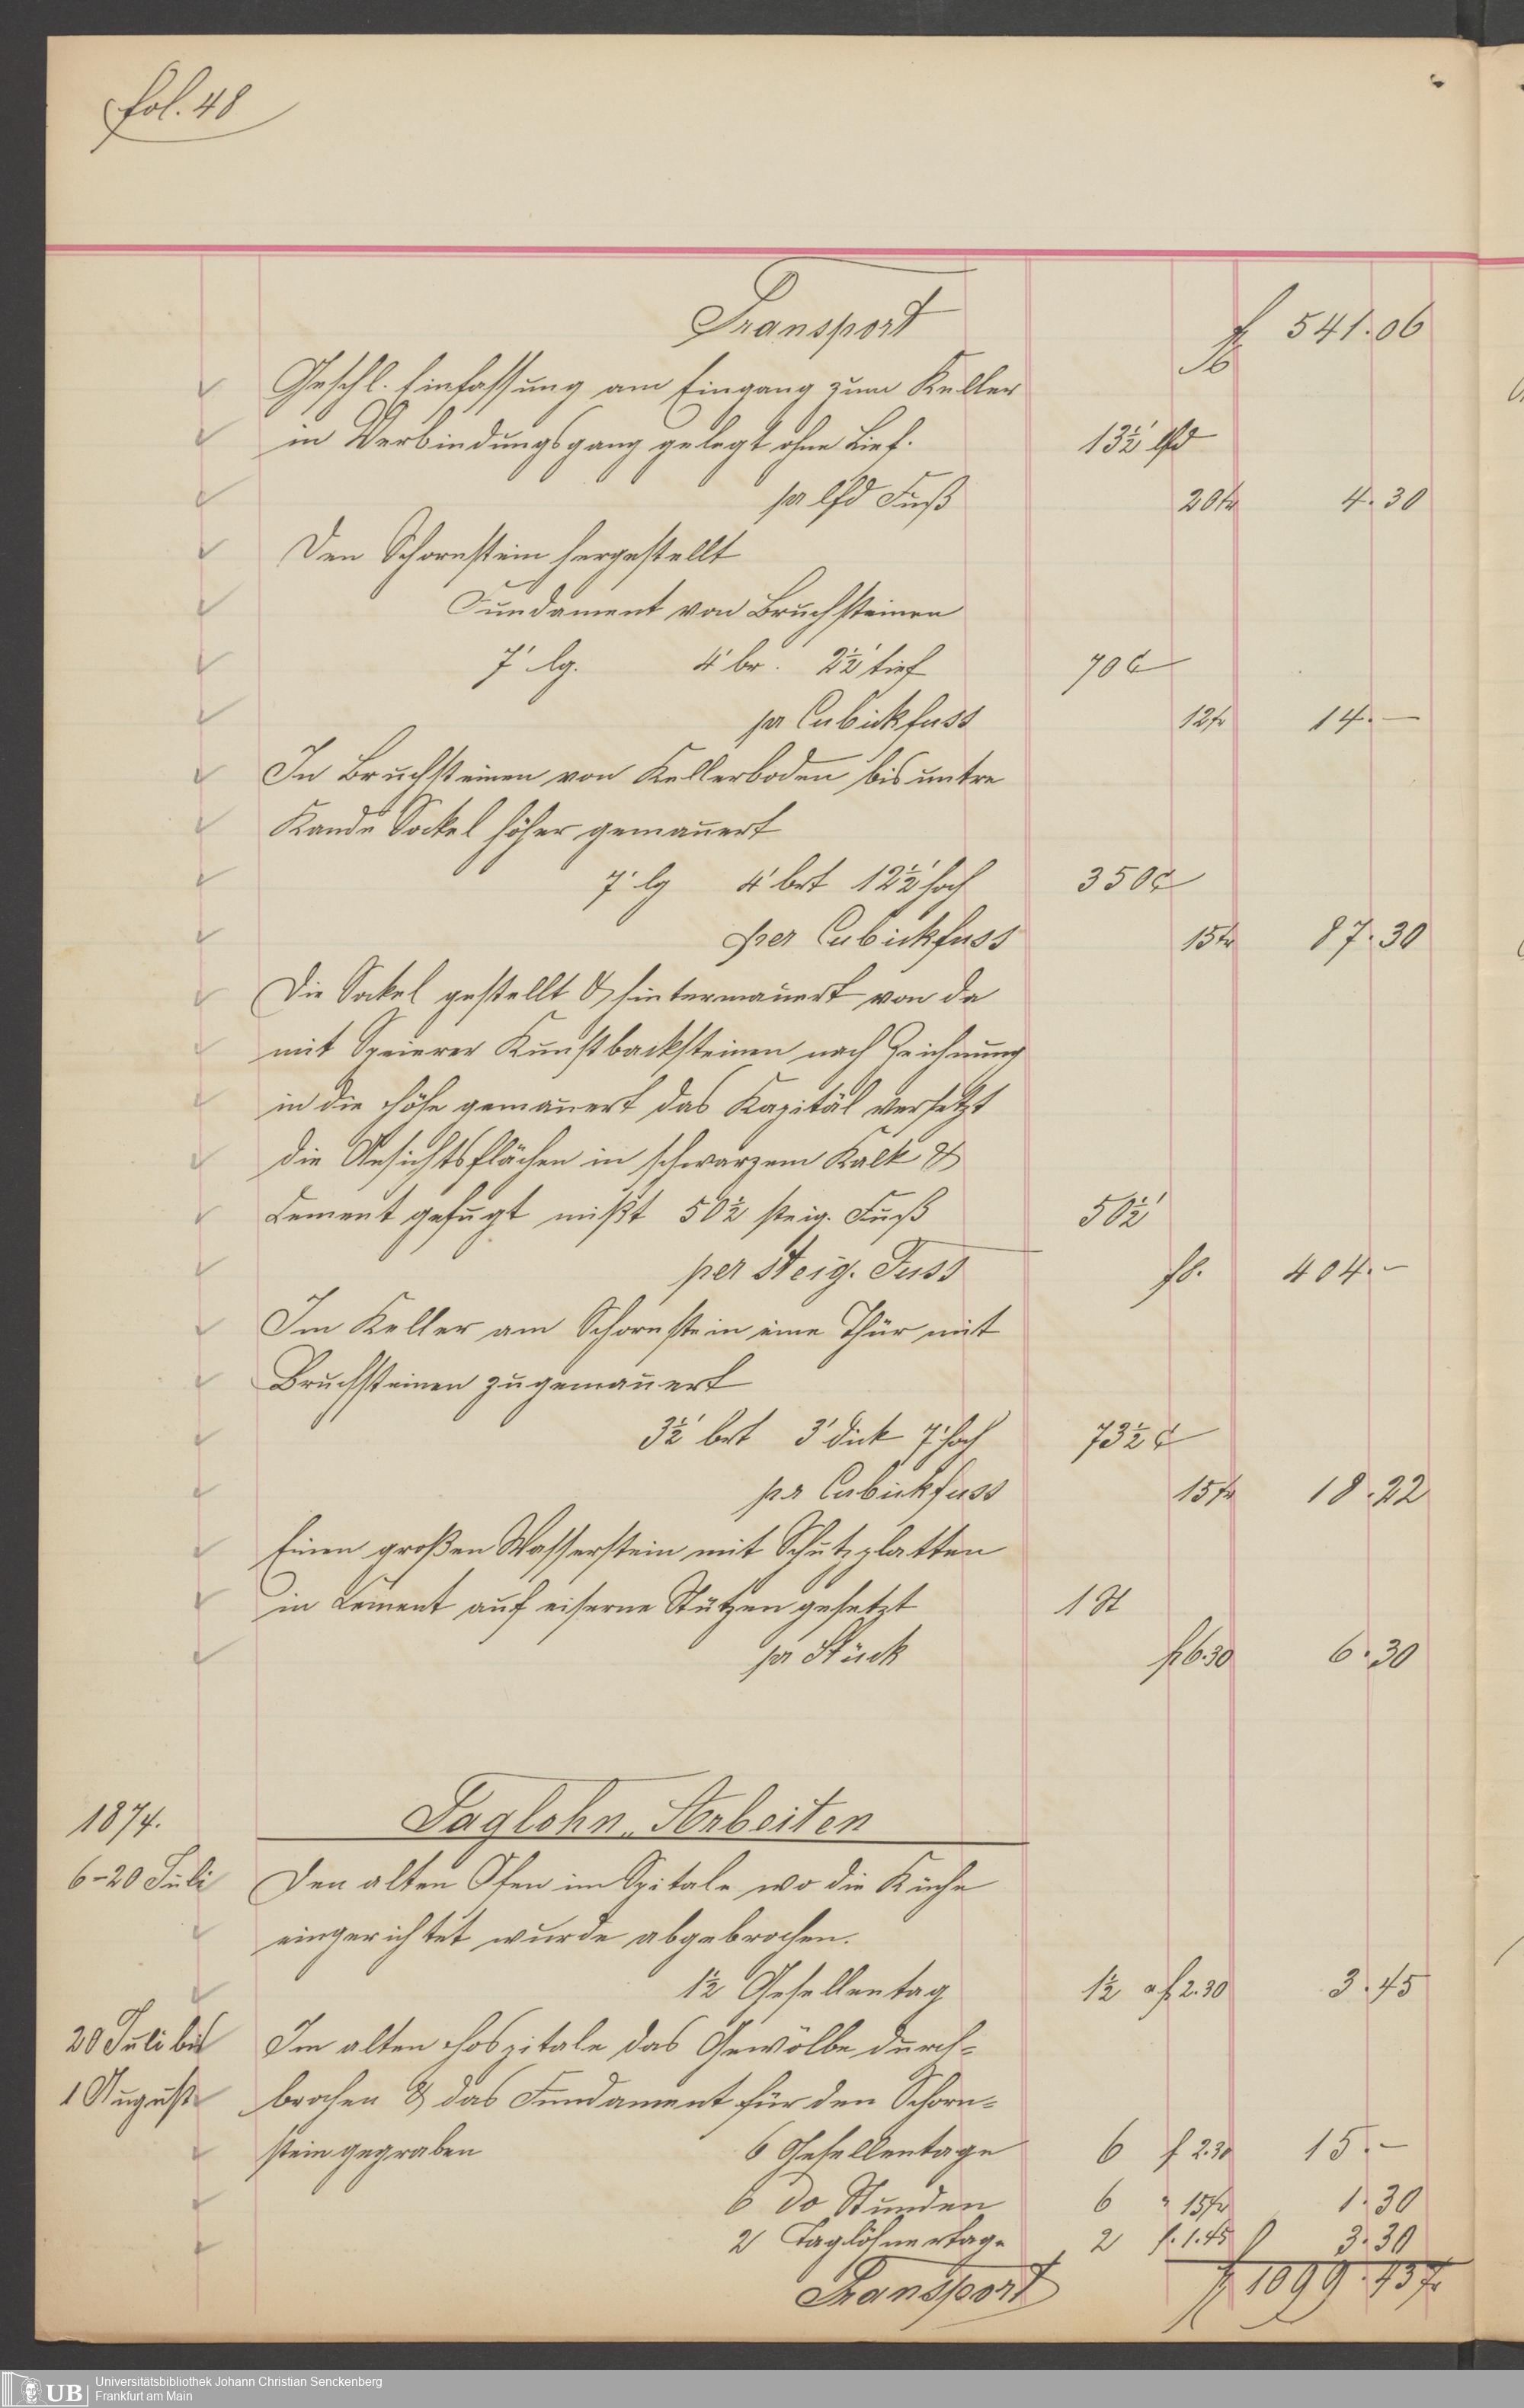 fol. 48
Transport f 541.06
Geschl. Einfassung am Eingang zum Keller
in Verbindungsgang gelegt ohne Lief. 13½' lfd
pr lfd Fuß 20kr 4.30
Den Schornstein hergestellt
Fundament von Bruchsteinen
7' lg. 4' br. 2½' tief 70 C
pr Cubickfuss 12kr 14.—
In Bruchsteinen von Kellerboden bis untre
Kande Sockel höher gemauert
7' lg 4' brt 12½' hoch 350 C
per Cubickfuss 15kr 87.30
Die Sockel gestellt & hintermauert von da
mit Speierer Kunstbacksteinen nach Zeichnung
in die Höhe gemauert das Kapitäl versetzt
die Ansichtsflächen in schwarzem Kalk &
Cement gefugt mißt 50½ steig. Fuß 50½'
per steig. Fuss f8. 404.—
Im Keller am Schornstein eine Thür mit
Bruchsteinen zugemauert
3½' brt 3' dick 7' hoch 73½ C
pr Cubickfuss 15kr 18.22
Einen großen Wasserstein mit Schutzplatten
in Cement auf eiserne Stützen gesetzt 1 St
pr Stück f 6.30 6.30
1874. Taglohn-Arbeiten
6-20 Juli Den alten Ofen im Spitale wo die Küche
eingerichtet wurde abgebrochen.
1½ Gesellentag 1½ a f 2.30 3.45
20 Juli bis Im alten Hospitale das Gewölbe durch-
1 August brochen & das Fundament für den Schorn-
stein gegraben 6 Gesellentage 6 f 2.30 15.—
6 do Stunden 6 " 15kr 1.30
2 Taglöhnertage 2 f. 1.45 3.30
Transport f 1099.43kr
UB Universitätsbibliothek Johann Christian Senckenberg
Frankfurt am Main